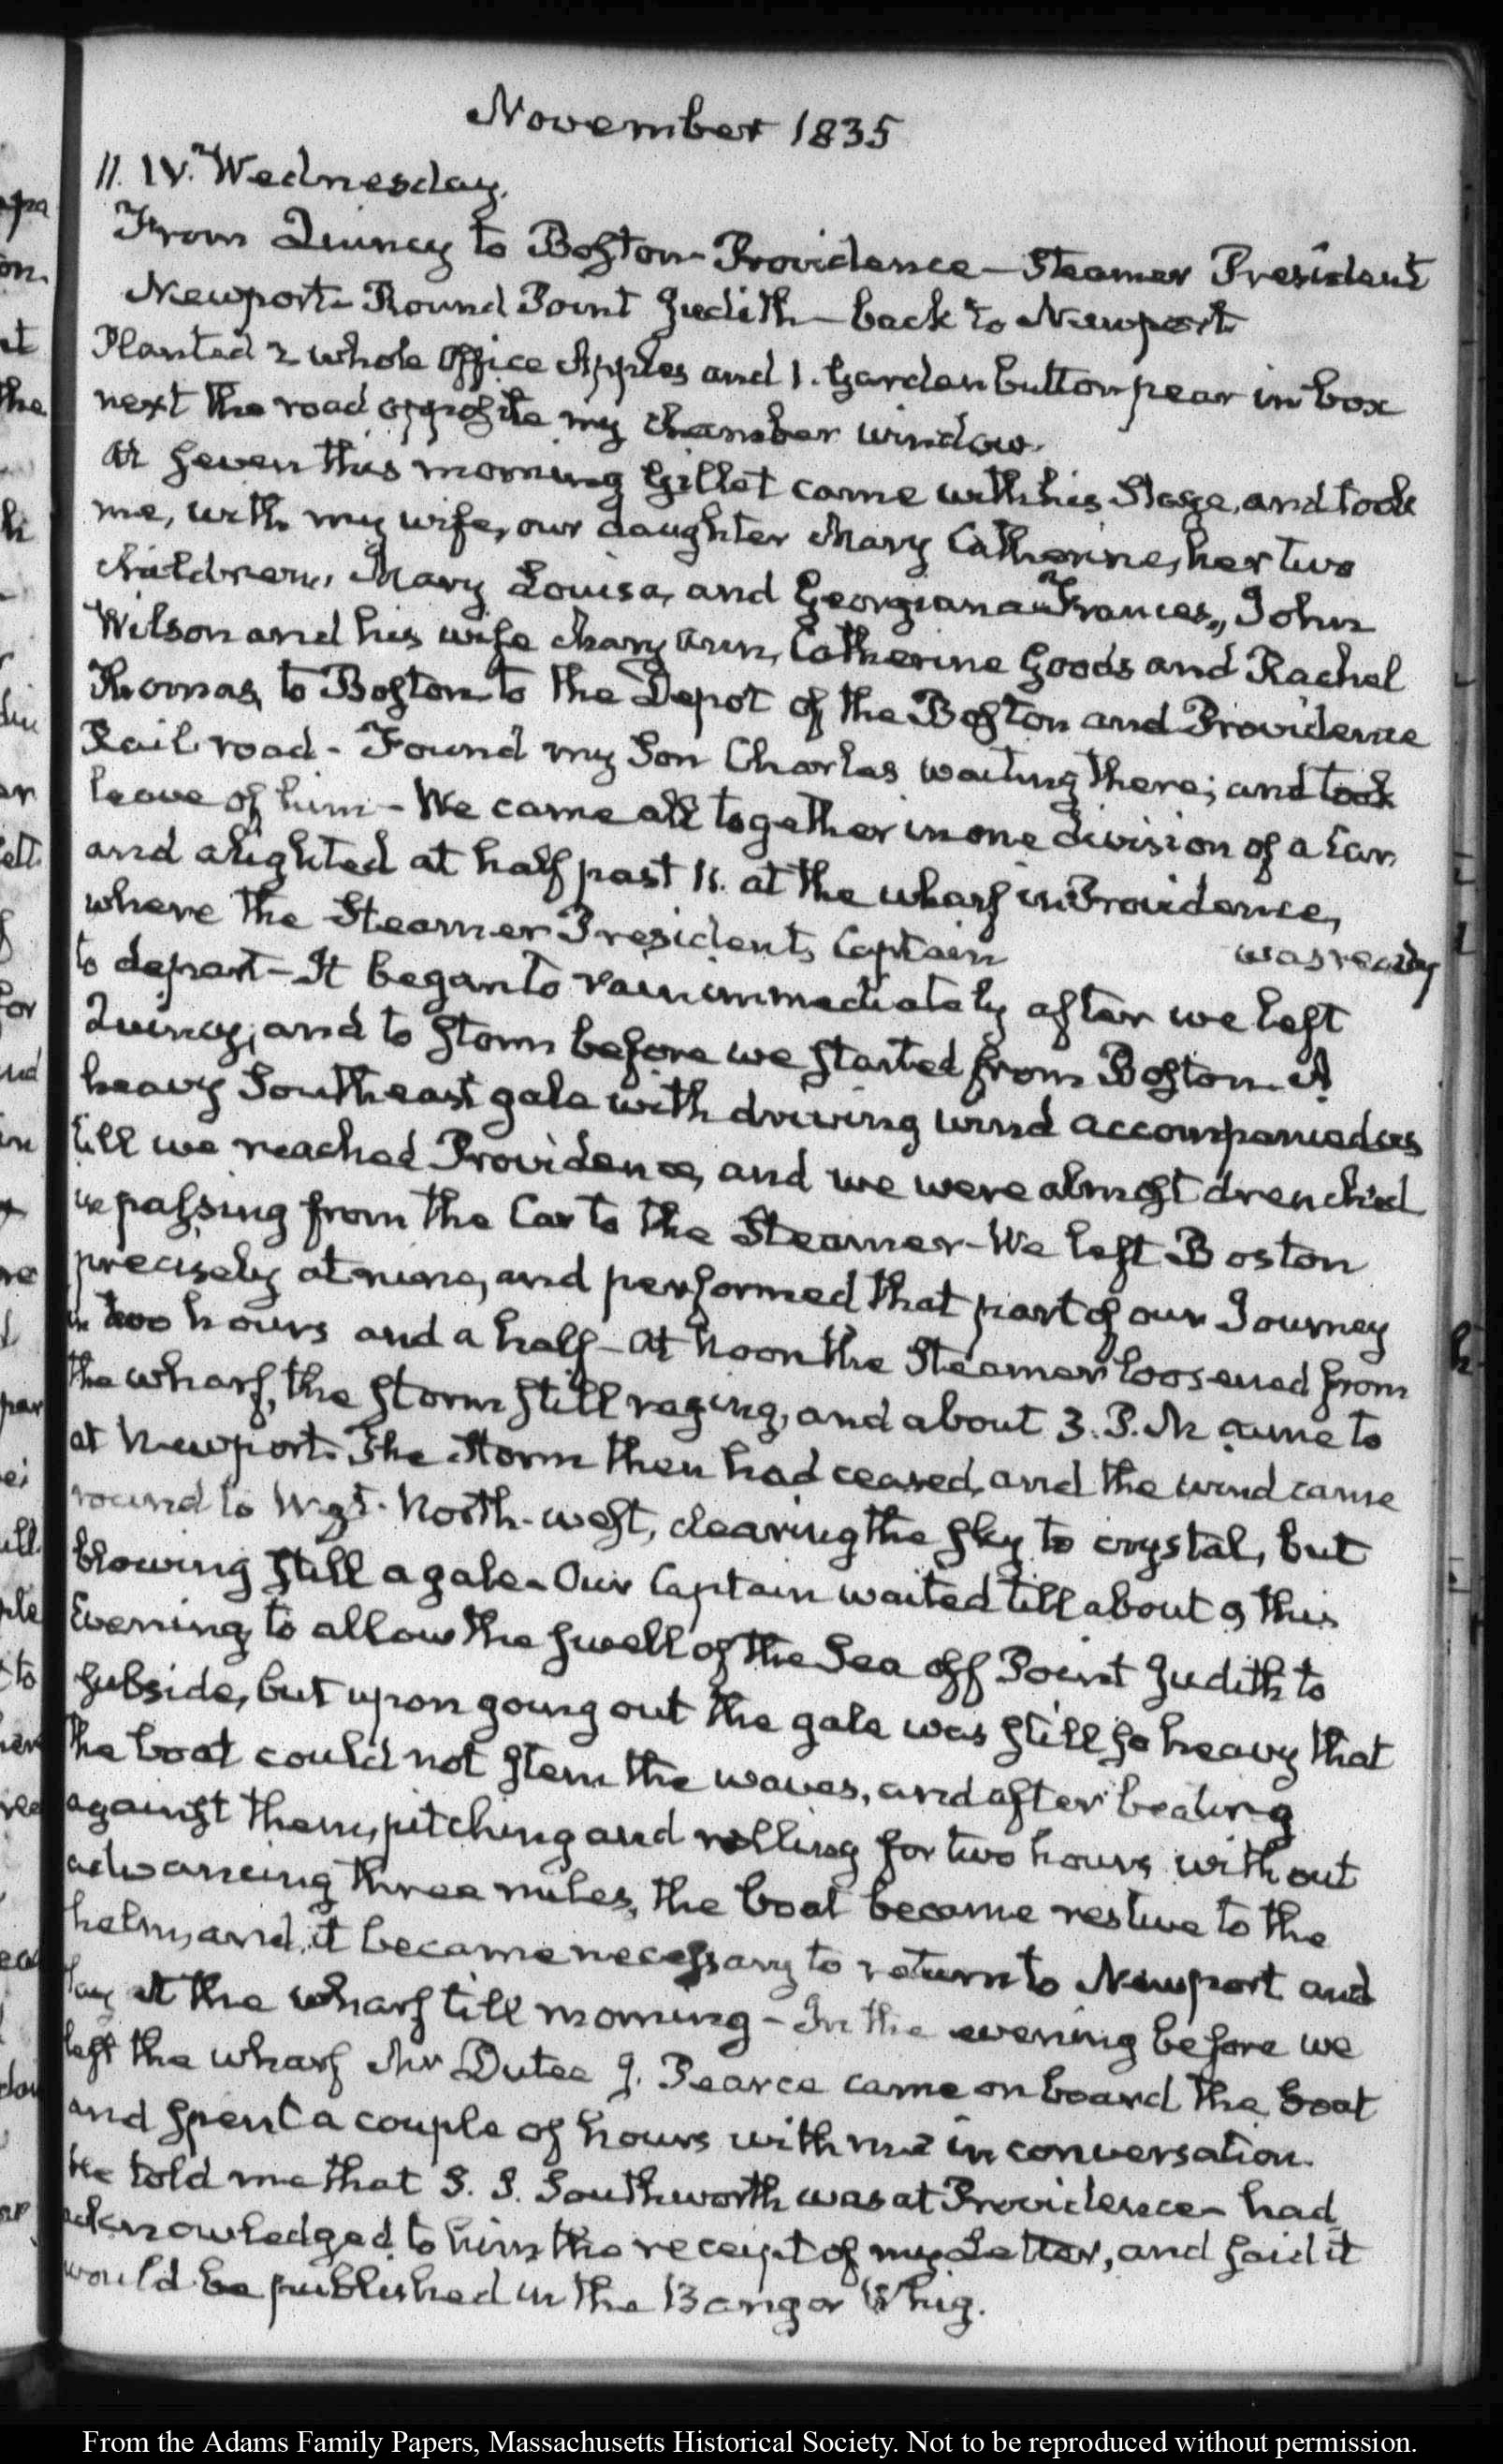 November 1835
11. IV. Wednesday.
From Quincy to Boston - Providence - Steamer President
Newport - Round Point Judith - back to Newport
Planted 2 whole Office Apples and 1. Garden button pear in box
next the road opposite my chamber window.
At seven this morning Gillet came with his Stage, and took
me, with my wife, our daughter Mary Catherine, her two
children, Mary Louisa, and Georgiana Frances, John
Wilson and his wife Mary Ann, Catherine Goods and Rachel
Thomas, to Boston to the Depot of the Boston and Providence
Rail road - Found my Son Charles waiting there; and took
leave of him - We came all together in one division of a Car,
and alighted at half past 11. at the wharf in Providence,
where the Steamer President, Captain was ready
to depart - It began to rain immediately after we left
Quincy, and to storm before we started from Boston. A
heavy Southeast gale with driving wind accompanied us
till we reached Providence, and we were almost drenched
in passing from the Car to the Steamer - We left Boston
precisely at nine, and performed that part of our Journey
in two hours and a half - At Noon the Steamer loosened from
the wharf, the storm still raging, and about 3. P.M. came to
at Newport. The storm then had ceased, and the wind came
round to North-west, clearing the sky to crystal, but
blowing still a gale - Our Captain waited till about 9 this
Evening, to allow the swell of the Sea off Point Judith to
subside, but upon going out the gale was still so heavy that
the boat could not stem the waves, and after beating
against them, pitching and rolling for two hours, without
advancing three miles, the boat became restive to the
helm, and it became necessary to return to Newport and
lay at the wharf till morning - In the evening before we
left the wharf Mr Dutee J. Pearce came on board the boat
and spent a couple of hours with me in conversation.
He told me that S. S. Southworth was at Providence - had
acknowledged to him the receipt of my Letter, and said it
would be published in the Bangor Whig.
From the Adams Family Papers, Massachusetts Historical Society. Not to be reproduced without permission.